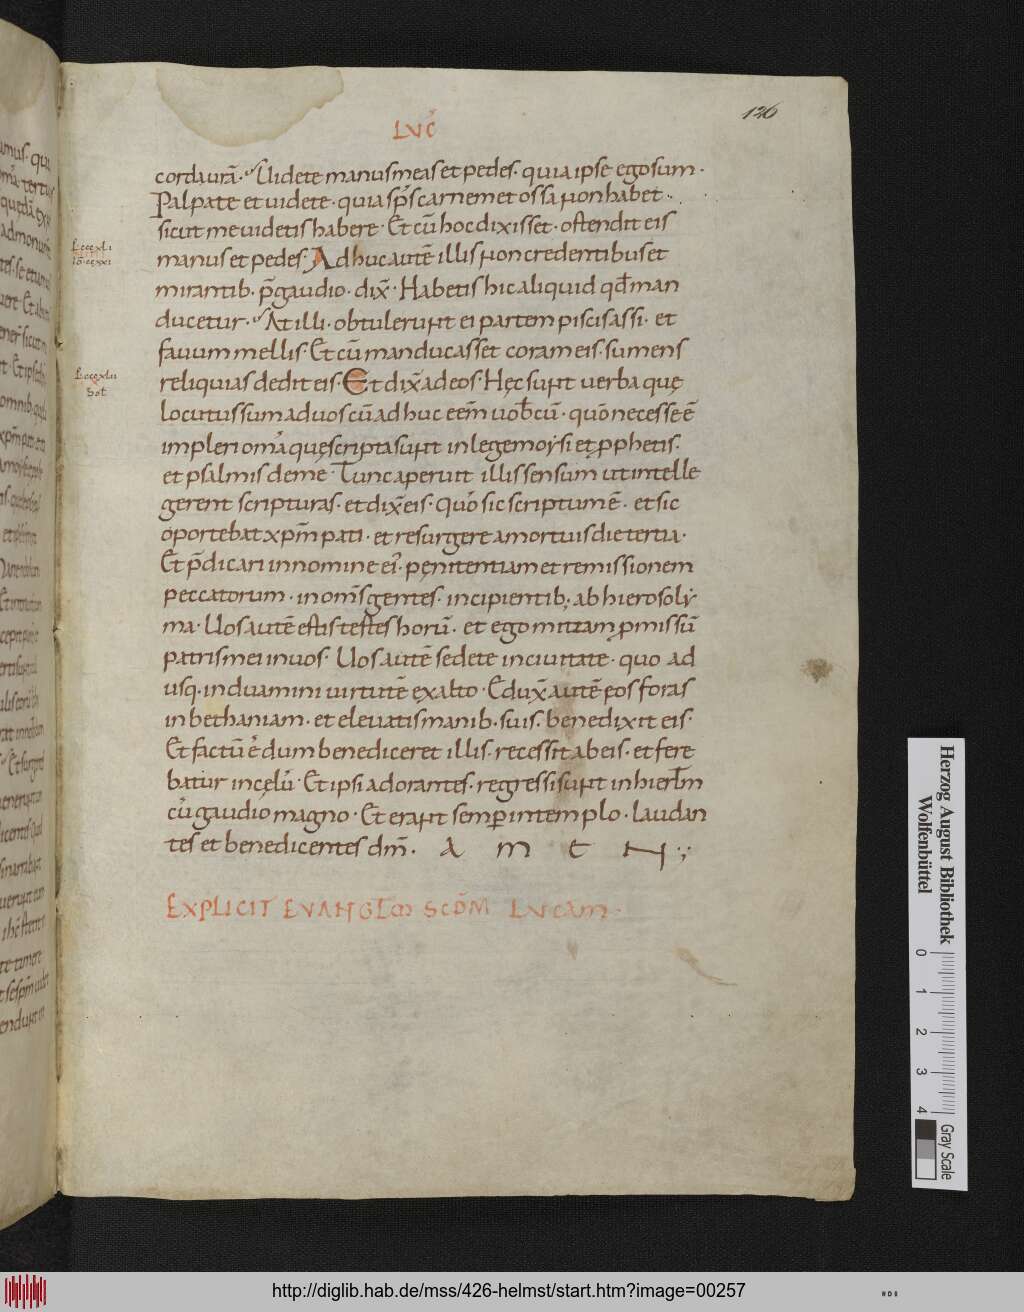 LVC̄
126
corda urā. Uidete manus meas et pedes. quia ipse ego sum.
Palpate et uidete. quia sp̄s carnem et ossa non habet.
sicut me uidetis habere. Et cū hoc dixisset. ostendit eis
manus et pedes. Adhuc autē illis non credentibus et
mirantib. p̄ gaudio. dix̄. Habetis hic aliquid qd̄ man
ducetur. At illi. obtulerunt ei partem piscis assi. et
fauum mellis. Et cū manducasset coram eis. sumens
reliquias dedit eis. Et dix̄ ad eos. Hęc sunt uerba quę
locutus sum ad uos cū adhuc eēm uob̄cū. quō necesse ē
impleri om̄a quę scripta sunt in lege moẏsi et ꝓphetis.
et psalmis de me. Tunc aperuit illis sensum ut intelle
gerent scripturas. et dix̄ eis. Quō sic scriptum ē. et sic
oportebat xp̄m pati. et resurgere a mortuis die tertia.
Et p̄dicari in nomine ei᾿. penitentiam et remissionem
peccatorum. in om̄s gentes. incipientib. ab hierosolẏ
ma. Uos autē estis testes horū. et ego mittam ꝓmissū
patris mei in uos. Uos autē sedete in ciuitate. quo ad
usq. induamini uirtutē ex alto. Edux̄ autē eos foras
in bethaniam. et eleuatis manib. suis. benedixit eis.
Et factū ē dum benediceret illis. recessit ab eis. et fere
batur in cęlū. Et ipsi adorantes. regressi sunt in hierl̄m
cū gaudio magno. Et erant semꝑ in templo. laudan
tes et benedicentes dm̄. A M E N
EXPLICIT EVANGLĪŌ SCD̄M LVCAM.
Herzog August Bibliothek
Wolfenbüttel
0 1 2 3 4
Gray Scale
http://diglib.hab.de/mss/426-helmst/start.htm?image=00257